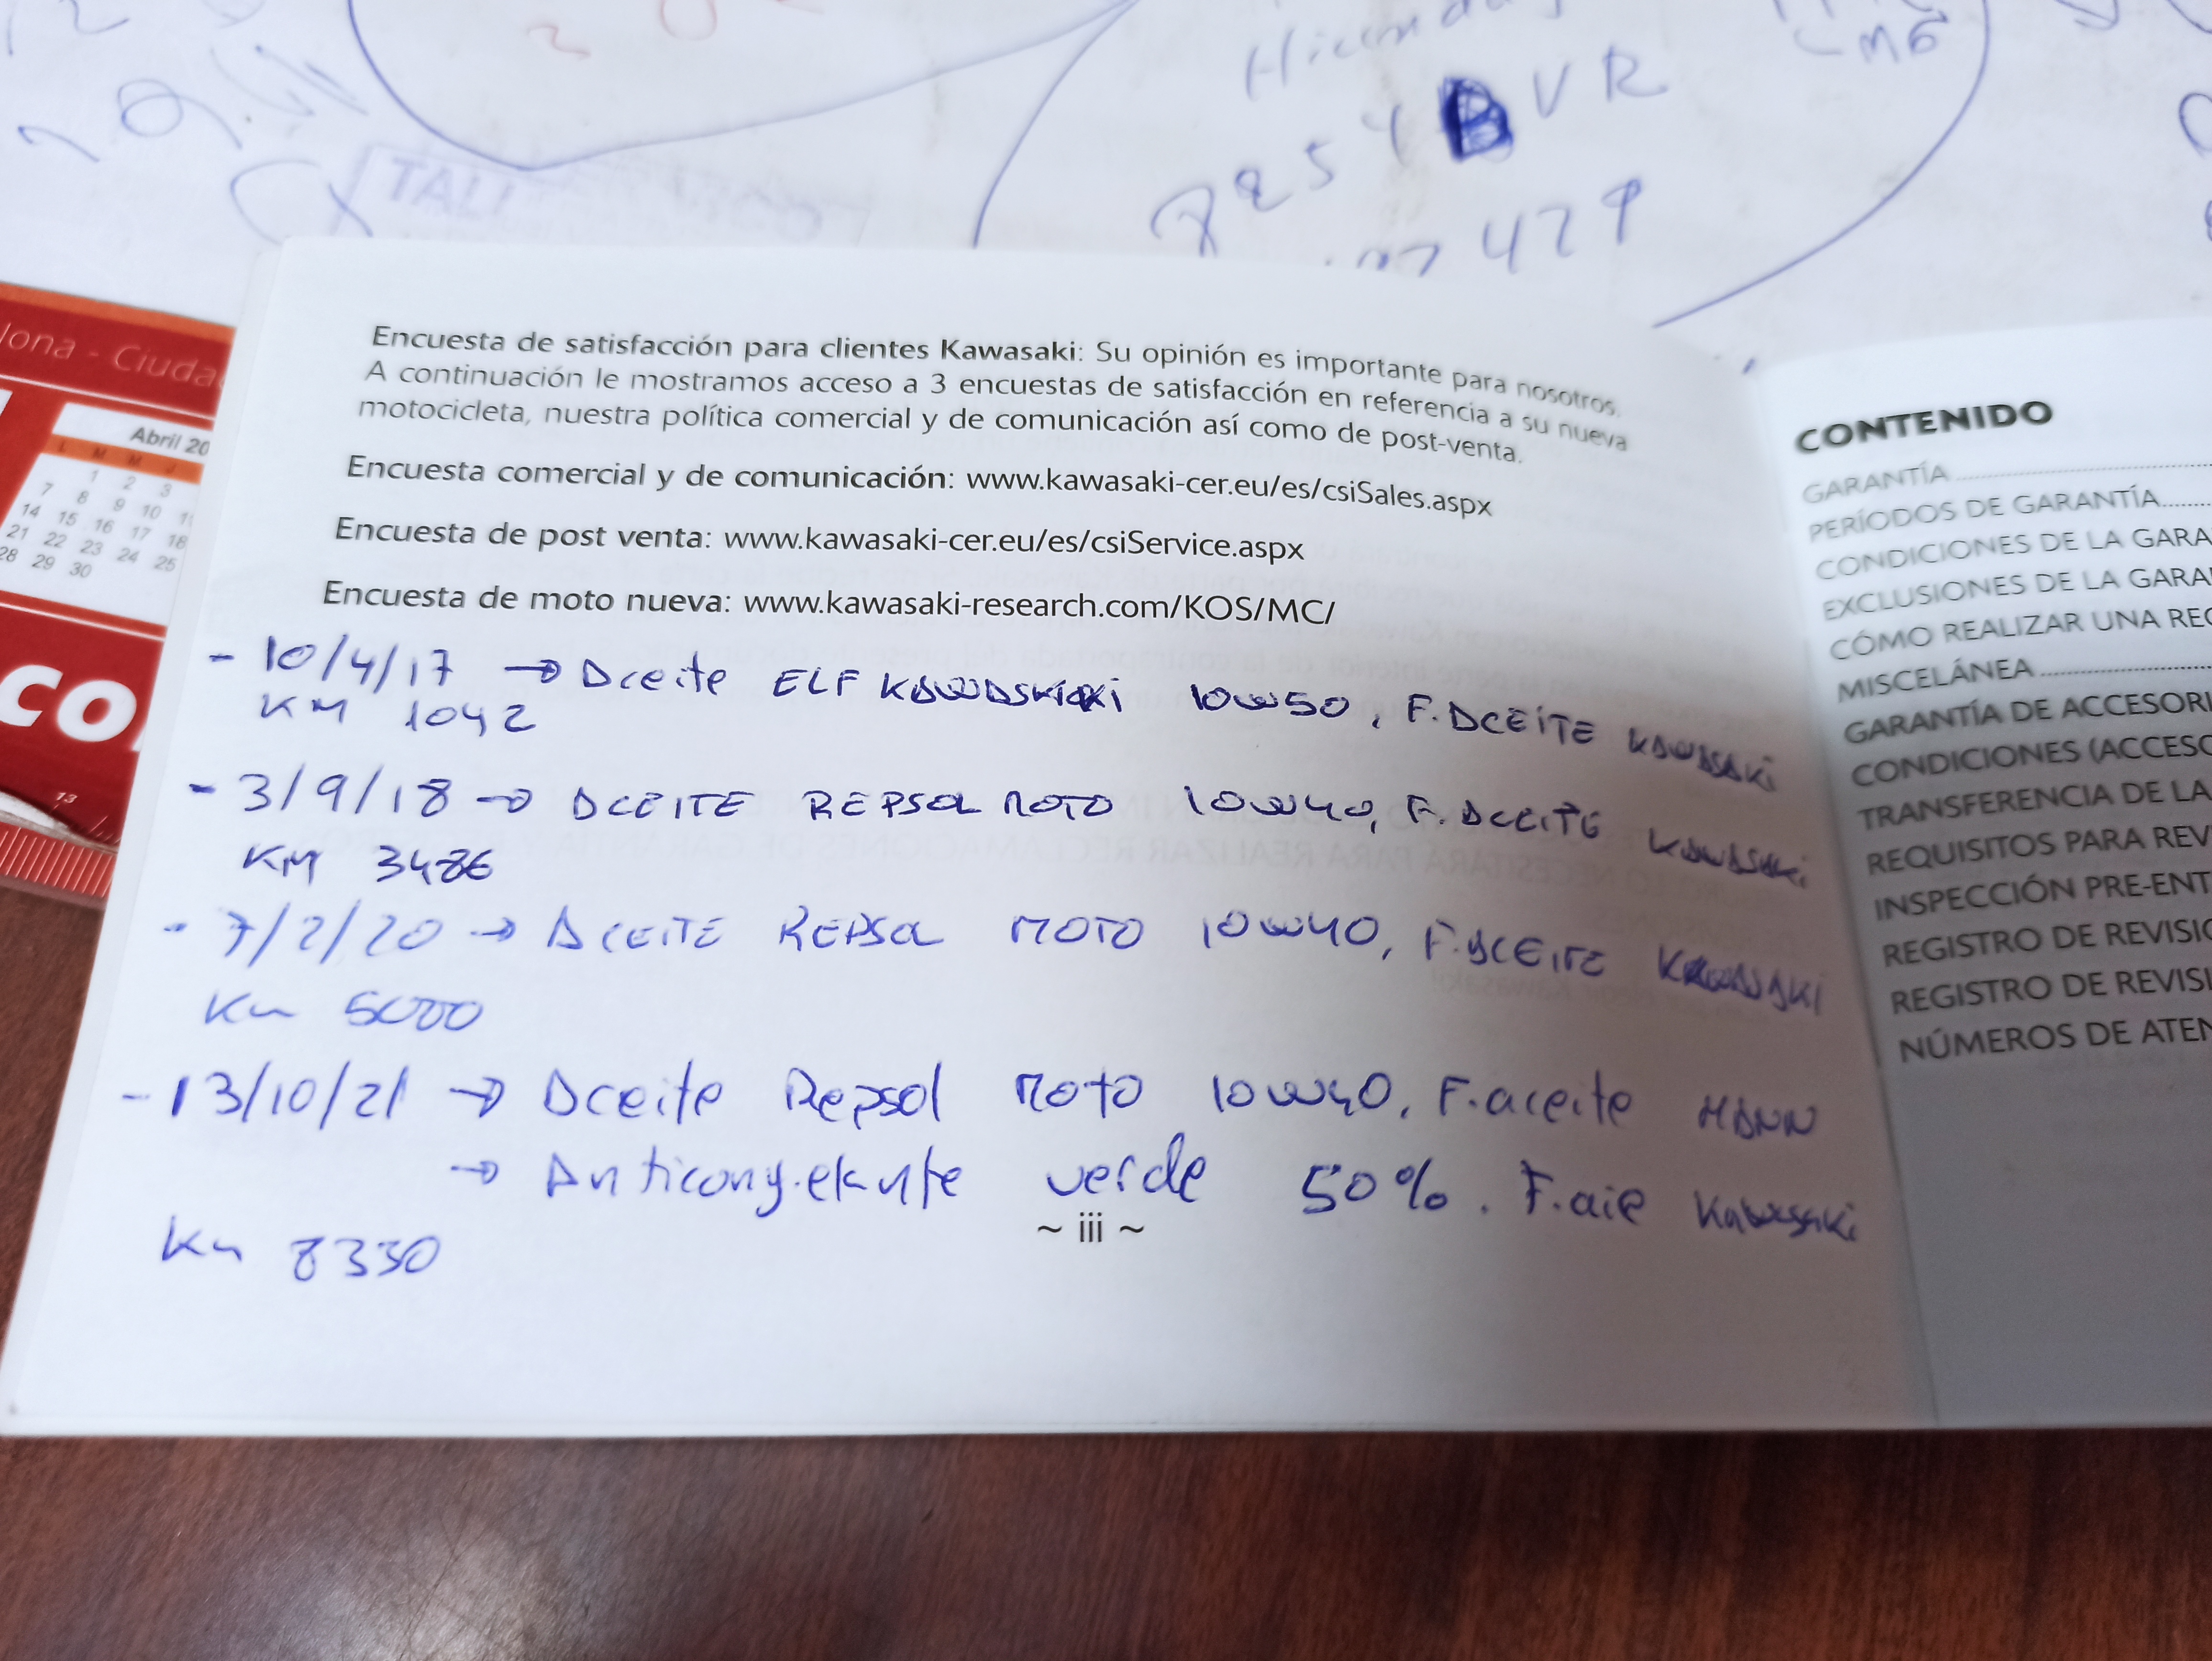 Hiunda
7254BVR
429
TALL
lona - Ciuda
Abril 20
L M M J
1 2 3
7 8 9 10
14 15 16 17 18
21 22 23 24 25
28 29 30
CO
13
Encuesta de satisfacción para clientes Kawasaki: Su opinión es importante para nosotros.
A continuación le mostramos acceso a 3 encuestas de satisfacción en referencia a su nueva
motocicleta, nuestra política comercial y de comunicación así como de post-venta.
Encuesta comercial y de comunicación: www.kawasaki-cer.eu/es/csiSales.aspx
Encuesta de post venta: www.kawasaki-cer.eu/es/csiService.aspx
Encuesta de moto nueva: www.kawasaki-research.com/KOS/MC/
- 10/4/17 → Aceite ELF KAWASKIAKI 10W50, F. ACEITE KAWASAKI
KM 1042
- 3/9/18 → ACEITE REPSOL MOTO 10W40, F. ACEITE KAWASAKI
KM 3486
- 7/2/20 → ACEITE REPSOL MOTO 10W40, F. ACEITE KAWASAKI
Km 5000
- 13/10/21 → Aceite Repsol Moto 10W40, F. aceite MANN
→ Anticongelante verde 50%. F. aire Kawasaki
~ iii ~
Km 8330
CONTENIDO
GARANTÍA
PERÍODOS DE GARANTÍA
CONDICIONES DE LA GARA
EXCLUSIONES DE LA GARA
CÓMO REALIZAR UNA REC
MISCELÁNEA
GARANTÍA DE ACCESORI
CONDICIONES (ACCESO
TRANSFERENCIA DE LA
REQUISITOS PARA REV
INSPECCIÓN PRE-ENT
REGISTRO DE REVISIO
REGISTRO DE REVISI
NÚMEROS DE ATEN